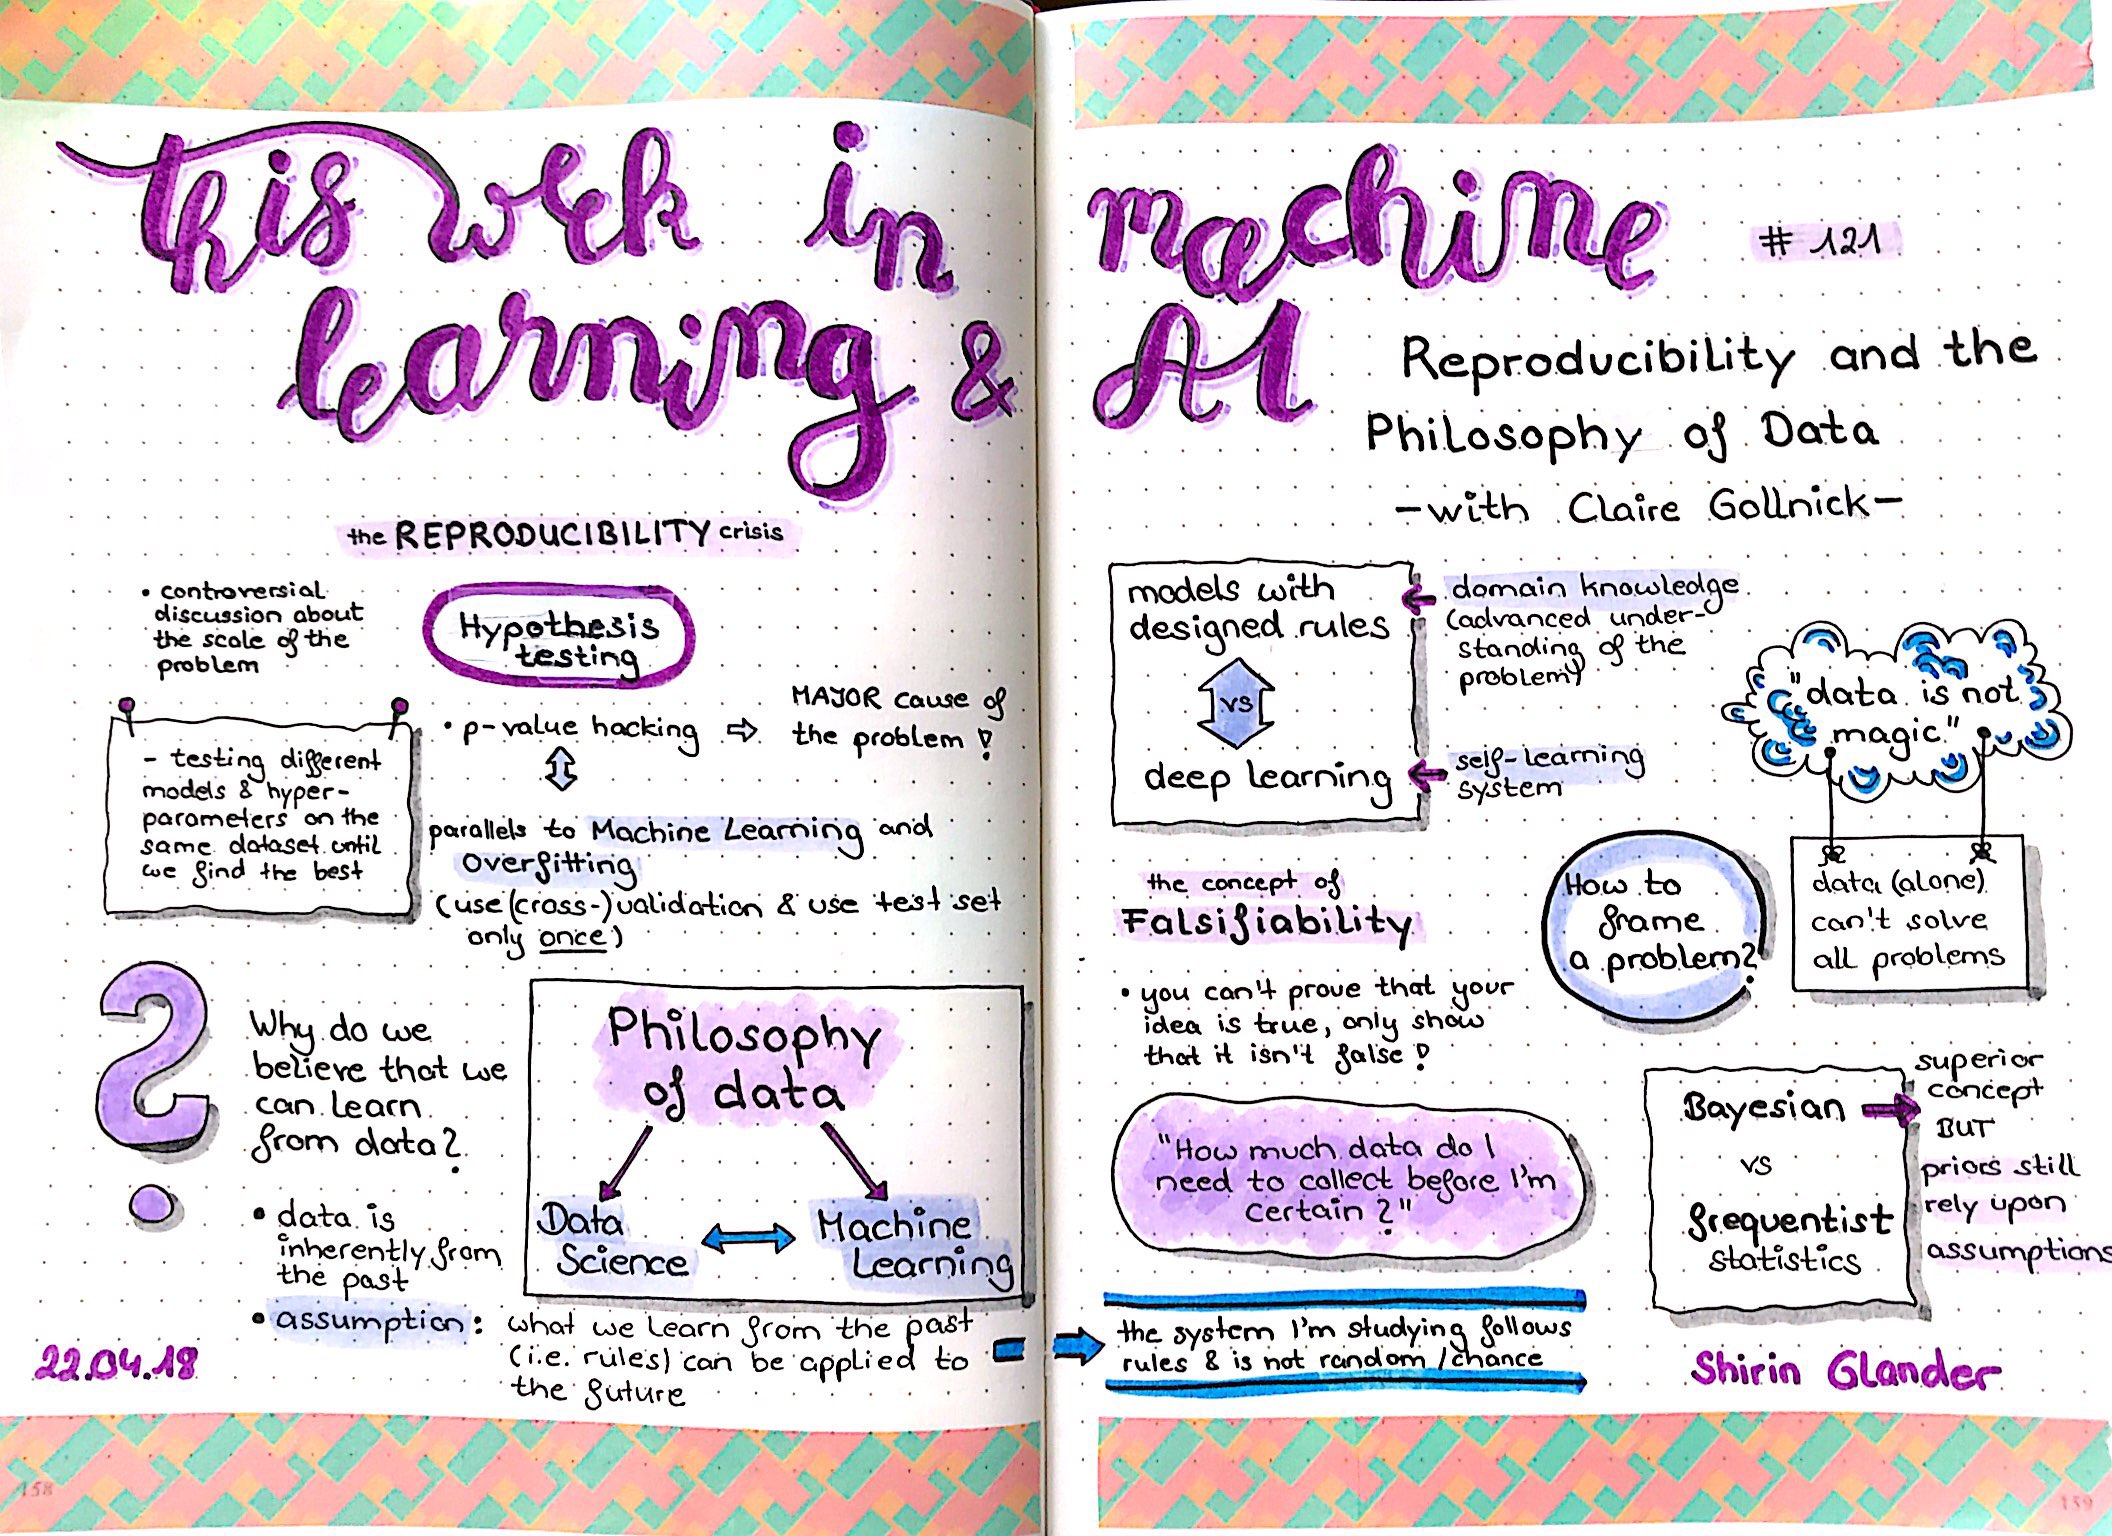 this week in machine
learning & AI
# 121
Reproducibility and the
Philosophy of Data
-with Claire Gollnick-
the REPRODUCIBILITY crisis
• controversial
discussion about
the scale of the
problem
Hypothesis
testing
• p-value hacking ⇨ MAJOR cause of
the problem !
- testing different
models & hyper-
parameters on the
same dataset until
we find the best
parallels to Machine Learning and
Overfitting
(use (cross-)validation & use test set
only once)
?
Why do we
believe that we
can learn
from data?
• data is
inherently from
the past
• assumption: what we learn from the past
(i.e. rules) can be applied to
the future
Philosophy
of data
Data
Science
Machine
Learning
22.04.18
158
models with
designed rules
vs
deep learning
domain knowledge
(advanced under-
standing of the
problem)
self-learning
system
"data is not
magic"
data (alone)
can't solve
all problems
How to
frame
a problem?
the concept of
Falsifiability
• you can't prove that your
idea is true, only show
that it isn't false !
"How much data do I
need to collect before I'm
certain?"
the system I'm studying follows
rules & is not random/chance
Bayesian
vs
frequentist
statistics
superior
concept
BUT
priors still
rely upon
assumptions
Shirin Glander
159